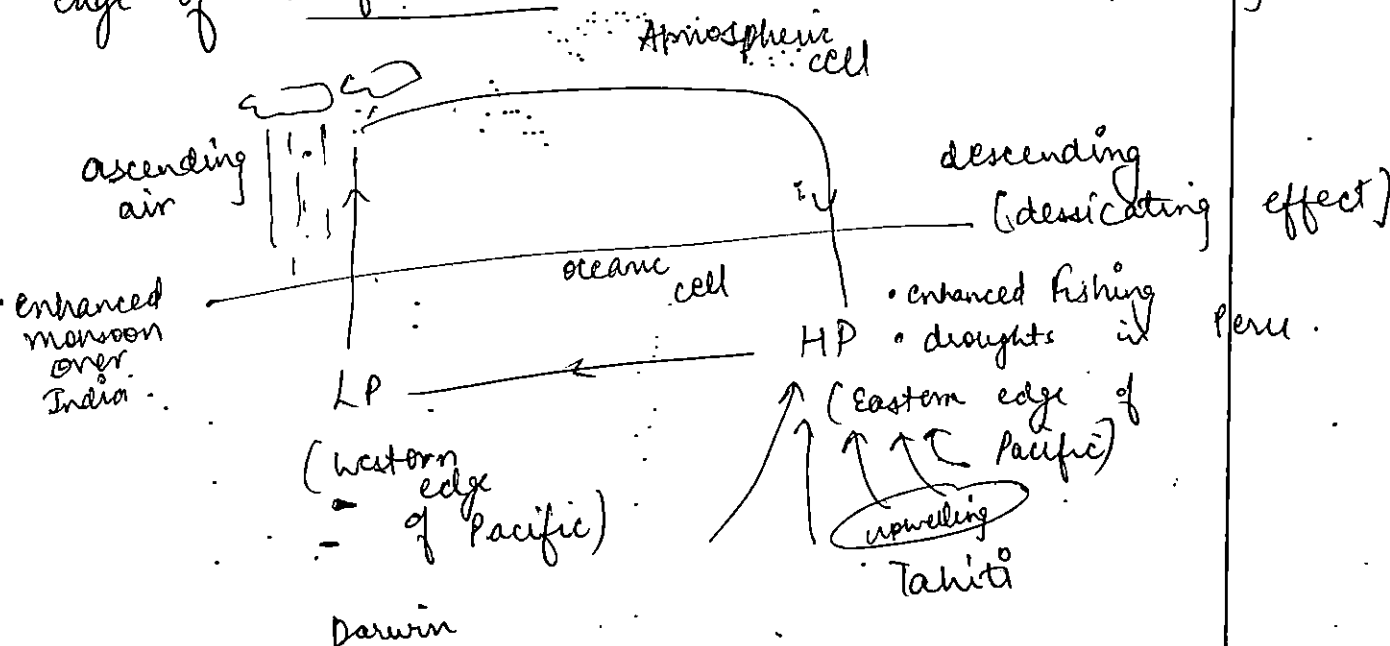 edge of
Atmospheric
cell
ascending
air
descending
(dessicating effect)
oceanic
cell
• enhanced
monsoon
over
India.
• enhanced fishing
HP • droughts in Peru.
LP
(Eastern edge of
Pacific)
(Western
edge
of Pacific)
upwelling
Tahiti
Darwin